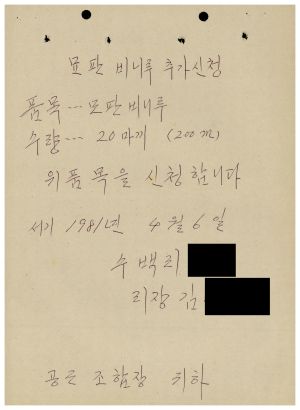 묘판 비니루 추가신청
품목… 묘판비니루
수량… 20마끼 (200m)
위품목을 신청합니다
서기 1981년 4월 6일
수백리
리장 김
조합장 귀하